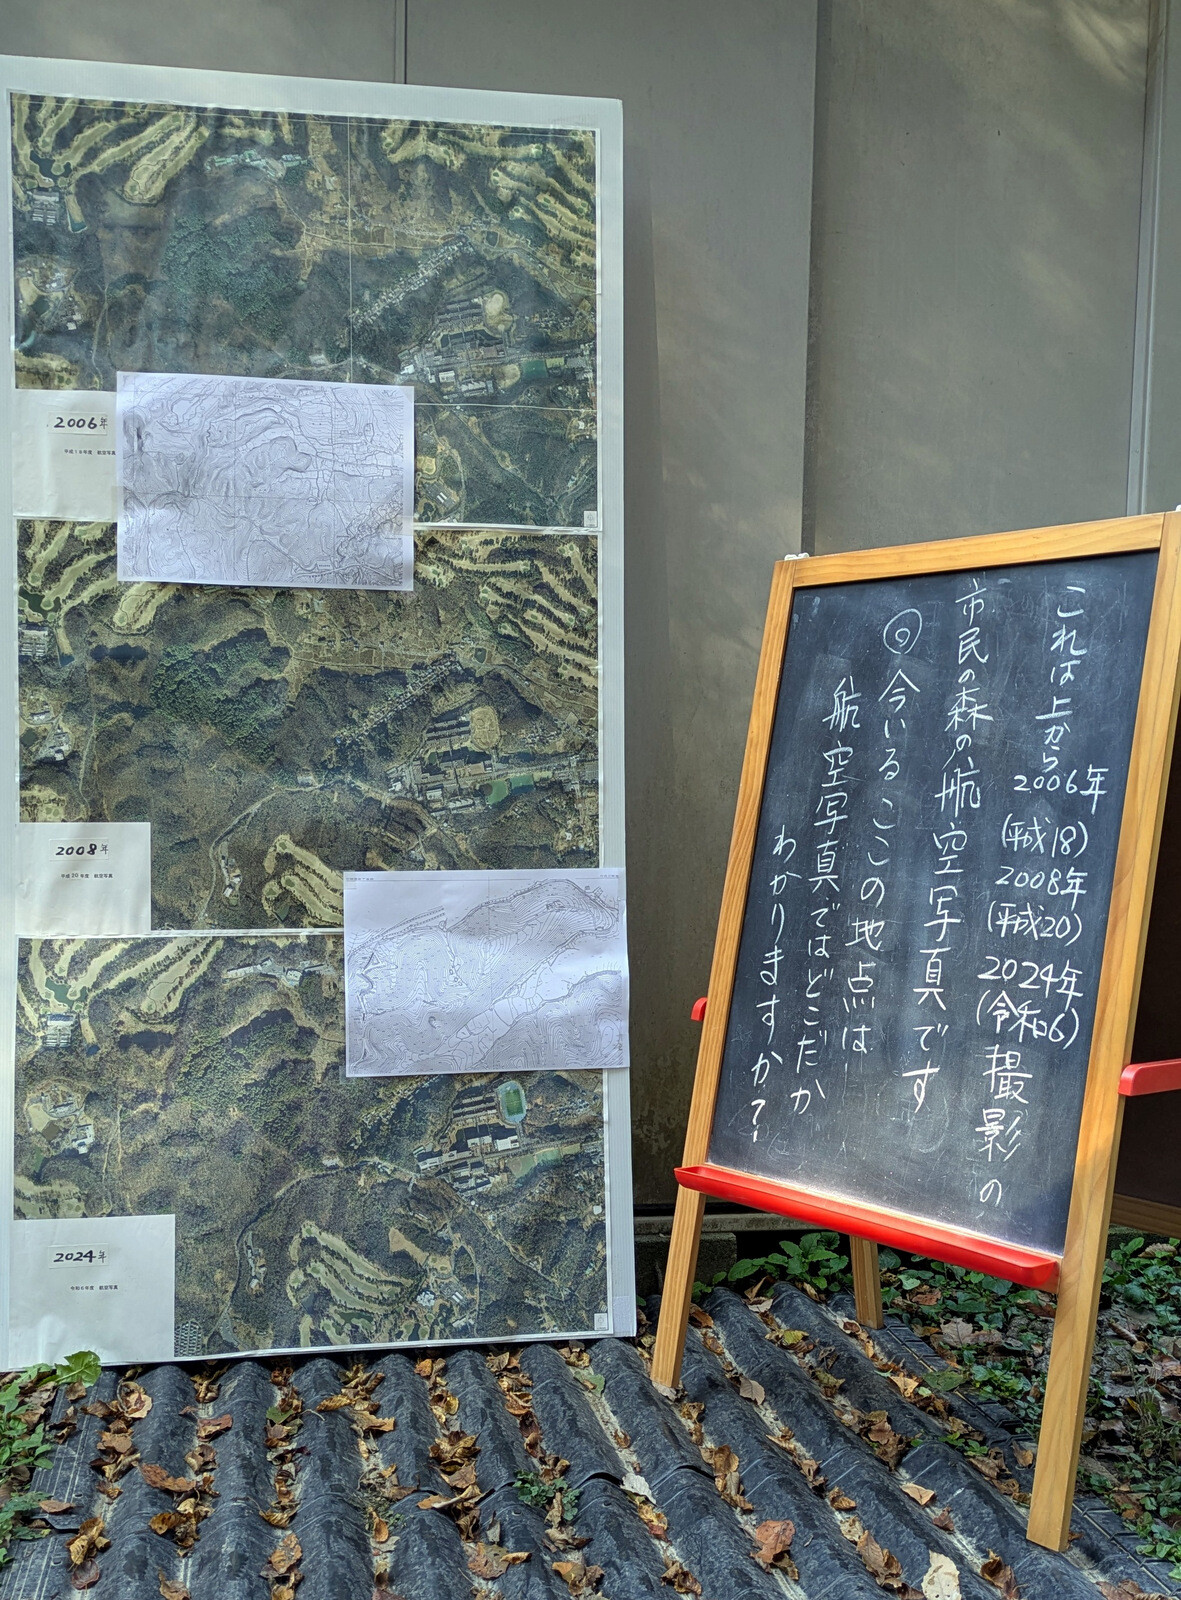 2006年
平成18年度 航空写真
2008年
平成20年度 航空写真
2024年
令和6年度 航空写真
これは上から
2006年
(平成18)
2008年
(平成20)
2024年
(令和6)
撮影の
市民の森の航空写真です
◎今いるここの地点は
航空写真ではどこだか
わかりますか?